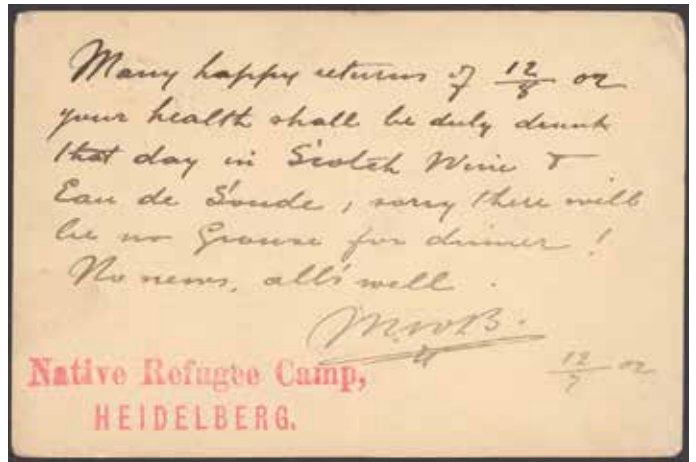 Many happy returns of 12/8 02
your health shall be duly drunk
that day in Scotch Wine &
Eau de Soude, sorry there will
be no Grouse for dinner!
No news, all's well.
M.W.B.
12/7 02
Native Refugee Camp,
HEIDELBERG.